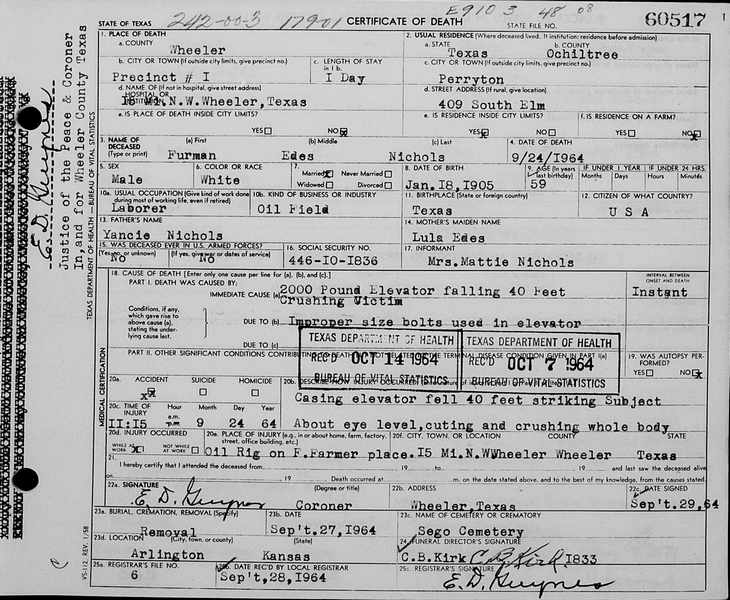 242-00-3 17901 E910 3 48 08
STATE OF TEXAS CERTIFICATE OF DEATH STATE FILE NO. 60517
1. PLACE OF DEATH 2. USUAL RESIDENCE (Where deceased lived. If institution: residence before admission)
a. COUNTY Wheeler a. STATE Texas b. COUNTY Ochiltree
b. CITY OR TOWN (If outside city limits, give precinct no.) c. LENGTH OF STAY in 1 b. c. CITY OR TOWN (If outside city limits, give precinct no.)
Precinct # I I Day Perryton
d. NAME OF (If not in hospital, give street address) HOSPITAL OR INSTITUTION d. STREET ADDRESS (If rural, give location)
I5 Mi.N.W.Wheeler,Texas 409 South Elm
e. IS PLACE OF DEATH INSIDE CITY LIMITS? e. IS RESIDENCE INSIDE CITY LIMITS? f. IS RESIDENCE ON A FARM?
YES NO X YES X NO YES NO X
3. NAME OF DECEASED (Type or print) (a) First (b) Middle (c) Last 4. DATE OF DEATH
Furman Edes Nichols 9/24/1964
5. SEX 6. COLOR OR RACE 7. Married X Never Married Widowed Divorced 8. DATE OF BIRTH 9. AGE (In years last birthday) IF UNDER 1 YEAR Months Days IF UNDER 24 HRS. Hours Minutes
Male White Jan.I8,I905 59
10a. USUAL OCCUPATION (Give kind of work done during most of working life, even if retired) 10b. KIND OF BUSINESS OR INDUSTRY 11. BIRTHPLACE (State or foreign country) 12. CITIZEN OF WHAT COUNTRY?
Laborer Oil Field Texas U S A
13. FATHER'S NAME 14. MOTHER'S MAIDEN NAME
Yancie Nichols Lula Edes
15. WAS DECEASED EVER IN U.S. ARMED FORCES? (Yes, no or unknown) (If yes, give war or dates of service) 16. SOCIAL SECURITY NO. 17. INFORMANT
No No 446-IO-I836 Mrs.Mattie Nichols
18. CAUSE OF DEATH [Enter only one cause per line for (a), (b), and (c).] INTERVAL BETWEEN ONSET AND DEATH
PART I. DEATH WAS CAUSED BY:
IMMEDIATE CAUSE (a) 2000 Pound Elevator falling 40 Feet Instant
Crushing Victim
Conditions, if any, which gave rise to above cause (a), stating the underlying cause last.
DUE TO (b) Improper size bolts used in elevator
DUE TO (c)
TEXAS DEPARTMENT OF HEALTH
REC'D OCT 14 1964
BUREAU OF VITAL STATISTICS
TEXAS DEPARTMENT OF HEALTH
REC'D OCT 7 1964
BUREAU OF VITAL STATISTICS
PART II. OTHER SIGNIFICANT CONDITIONS CONTRIBUTING TO DEATH BUT NOT RELATED TO THE TERMINAL DISEASE CONDITION GIVEN IN PART I(a) 19. WAS AUTOPSY PERFORMED?
YES NO X
20a. ACCIDENT SUICIDE HOMICIDE 20b. DESCRIBE HOW INJURY OCCURRED
xX Casing elevator fell 40 feet striking Subject
20c. TIME OF INJURY Hour a.m. p.m. Month Day Year
II:I5 9 24 64 About eye level,cuting and crushing whole body
20d. INJURY OCCURRED 20e. PLACE OF INJURY (e.g., in or about home, farm, factory, street, office building, etc.) 20f. CITY, TOWN, OR LOCATION COUNTY STATE
WHILE AT WORK X NOT WHILE AT WORK Oil Rig on F.Farmer place.I5 Mi.N.WWheeler Wheeler Texas
21. I hereby certify that I attended the deceased from 19 to 19 and last saw the deceased alive
on 19 Death occurred at m. on the date stated above, and to the best of my knowledge, from the causes stated.
22a. SIGNATURE (Degree or title) 22b. ADDRESS 22c. DATE SIGNED
E. D. Guynes Coroner Wheeler,Texas Sep't.29,64
23a. BURIAL, CREMATION, REMOVAL (Specify) 23b. DATE 23c. NAME OF CEMETERY OR CREMATORY
Removal Sep't.27,I964 Sego Cemetery
23d. LOCATION (City, town, or county) (State) 24. FUNERAL DIRECTOR'S SIGNATURE
Arlington Kansas C.B.Kirk C. B. Kirk I833
25a. REGISTRAR'S FILE NO. 25b. DATE REC'D BY LOCAL REGISTRAR 25c. REGISTRAR'S SIGNATURE
6 Sep't,28,I964 E. D. Guynes
E. D. Guynes
Justice of the Peace & Coroner
In,and for Wheeler County Texas
TEXAS DEPARTMENT OF HEALTH — BUREAU OF VITAL STATISTICS
MEDICAL CERTIFICATION
VS-112 REV. 1/58